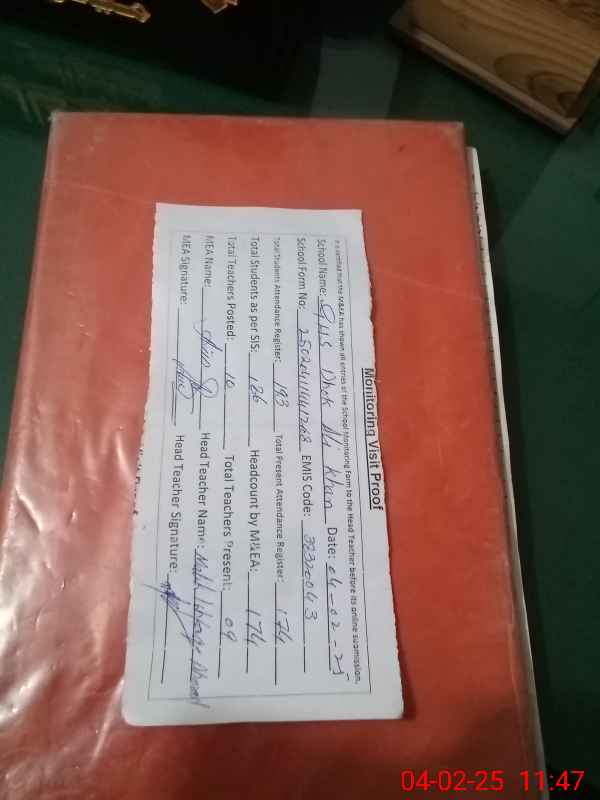 Monitoring Visit Proof
It is certified that the M&EA has shown all entries of the School Monitoring Form to the Head Teacher before its online submission.
School Name: GHS Dhok Ali Khan Date: 04-02-25
School Form No: EMIS Code:
Total Students Attendance Register: 193 Total Present Attendance Register: 174
Total Students as per SIS: Headcount by M&EA: 174
Total Teachers Posted: 10 Total Teachers Present: 09
MEA Name: Head Teacher Name: Malik Ahmad
MEA Signature: Head Teacher Signature:
04-02-25 11:47